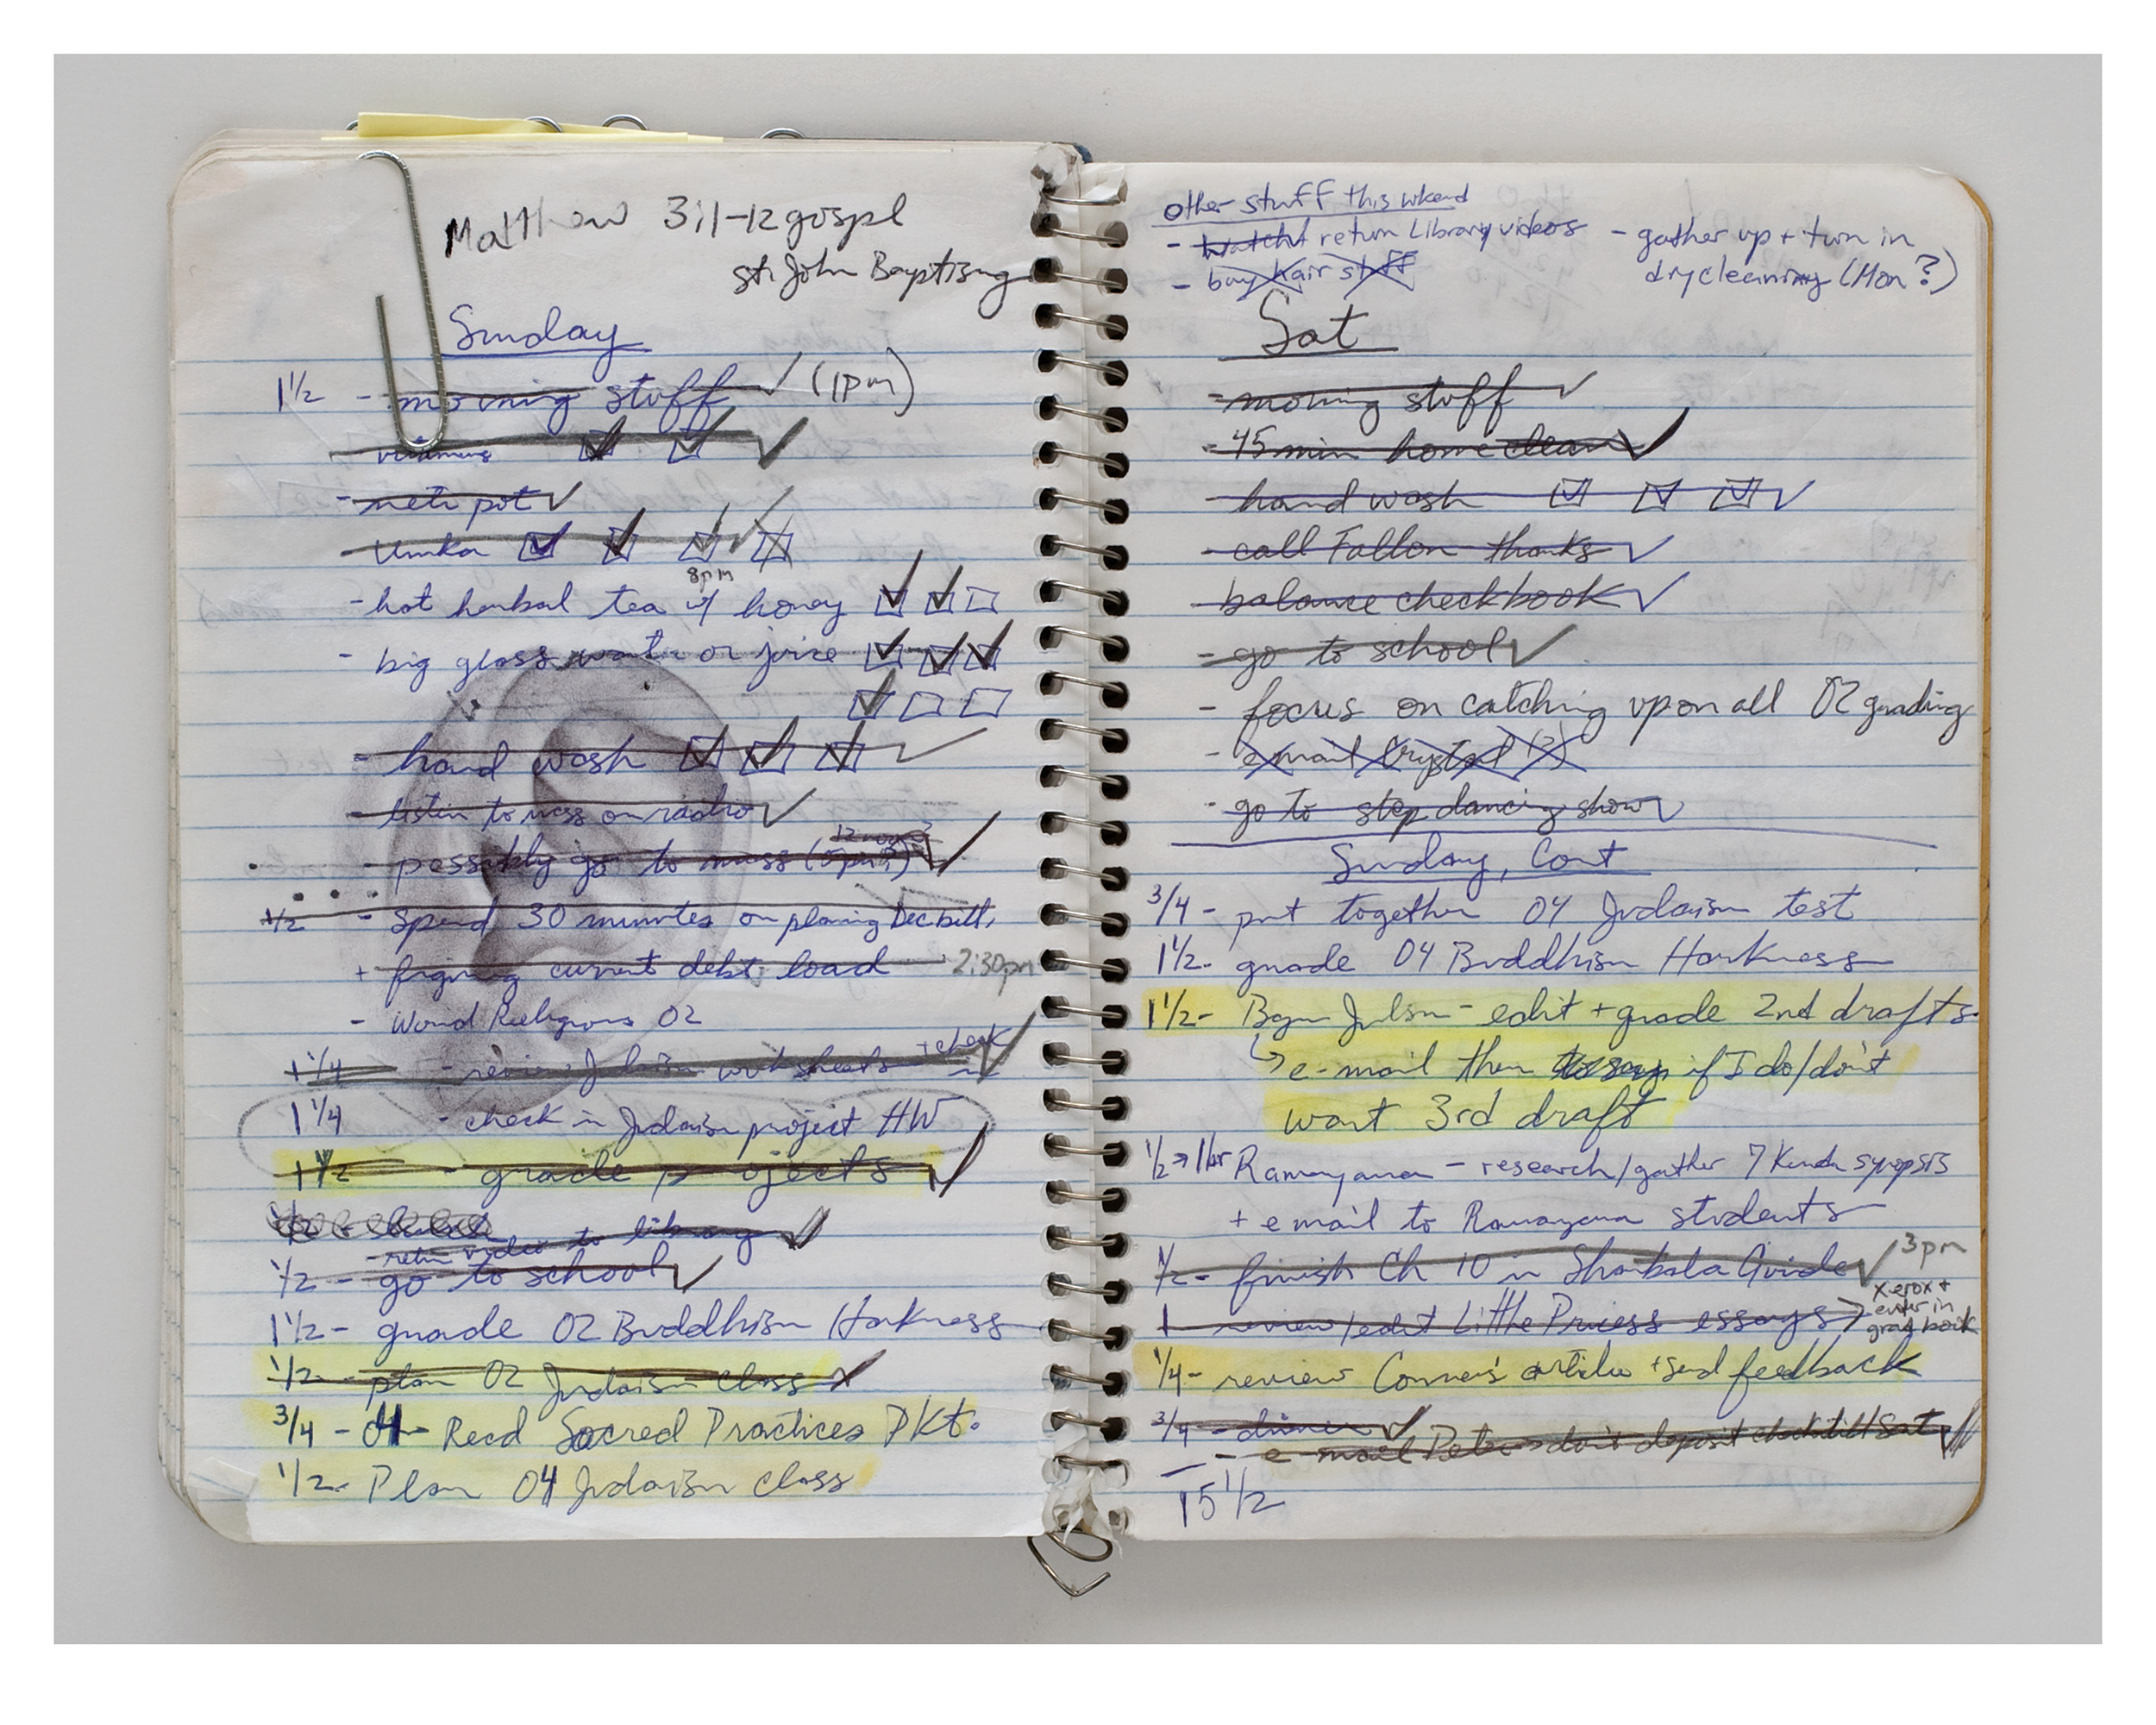 Matthew 3:1-12 gospel
St. John Baptising
Sunday
1 1/2 - morning stuff (1pm)
vitamins
- neti pot
- Umka
8pm
- hot herbal tea w/ honey
- big glass water or juice
- hand wash
- listen to mess on radio
12 noon?
- possibly go to mass (5pm?)
1/2 - Spend 30 minutes on planing Dec bill,
+ figuring current debt load 2:30pm
- World Religions 02
+ check
1 1/4 - review Judaism worksheets
1 1/4 - check in Judaism project HW
1 1/2 - grade projects
1/2 -
- retrn video to library
1/2 - go to school
1 1/2 - grade 02 Buddhism Harkness
1/2 - plan 02 Judaism class
3/4 - 04 - Read Sacred Practices Pkt.
1/2 - Plan 04 Judaism class
other stuff this wkend
- watch return Library videos
- buy hair stuff
- gather up + turn in
drycleaning (Mon?)
Sat
- morning stuff
- 45 min home clean
- hand wash
- call Fallon thanks
- balance checkbook
- go to school
- focus on catching up on all 02 grading
- e-mail Crystal (?)
- go to step dancing show
Sunday, Cont
3/4 - put together 04 Judaism test
1 1/2 - grade 04 Buddhism Harkness
1 1/2 - - edit + grade 2nd drafts
e-mail them to say if I do/don't
want 3rd draft
1/2 → 1 hr Ramayana - research/gather 7 Kanda synopsis
+ email to Ramayana students
1/2 - finish Ch 10 in Shambala Guide 3pm
1 review/edit Little Princess essays
xerox +
enter in
grad book
1/4 - review Conner's article + send feedback
3/4 - dinner
- e-mail Peter don't deposit check till Sat
15 1/2